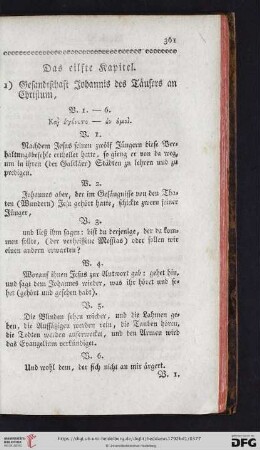 361
Das eilfte Kapitel.
1) Gesandtschaft Johannis des Täufers an
Christum,
V. 1. — 6.
Και εγενετο — εν εμοι.
V. 1.
Nachdem Jesus seinen zwölf Jüngern diese Ver-
haltungsbefehle ertheilet hatte, so gieng er von da weg,
um in ihren (der Galiläer) Städten zu lehren und zu
predigen.
V. 2.
Johannes aber, der im Gefängnisse von den Tha-
ten (Wundern) Jesu gehört hatte, schickte zween seiner
Jünger,
V. 3.
und ließ ihm sagen: bist du derjenige, der da kom-
men sollte, (der verheißene Messias) oder sollen wir
einen andern erwarten?
V. 4.
Worauf ihnen Jesus zur Antwort gab: gehet hin,
und sagt dem Johannes wieder, was ihr höret und se-
het (gehört und gesehen habt).
V. 5.
Die Blinden sehen wieder, und die Lahmen ge-
hen, die Aussätzigen werden rein, die Tauben hören,
die Todten werden auferweckt, und den Armen wird
das Evangelium verkündiget.
V. 6.
Und wohl dem, der sich nicht an mir ärgert.
V. 1.
UNIVERSITÄTS-
BIBLIOTHEK
HEIDELBERG
Gefördert durch die
DFG